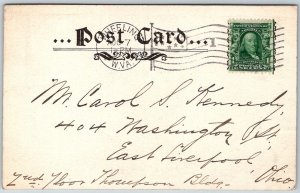 Post Card
W.VA.
1
Mr. Carol S. Kennedy
404 Washington St.
East Liverpool
2nd Floor Thompson Bldg. Ohio